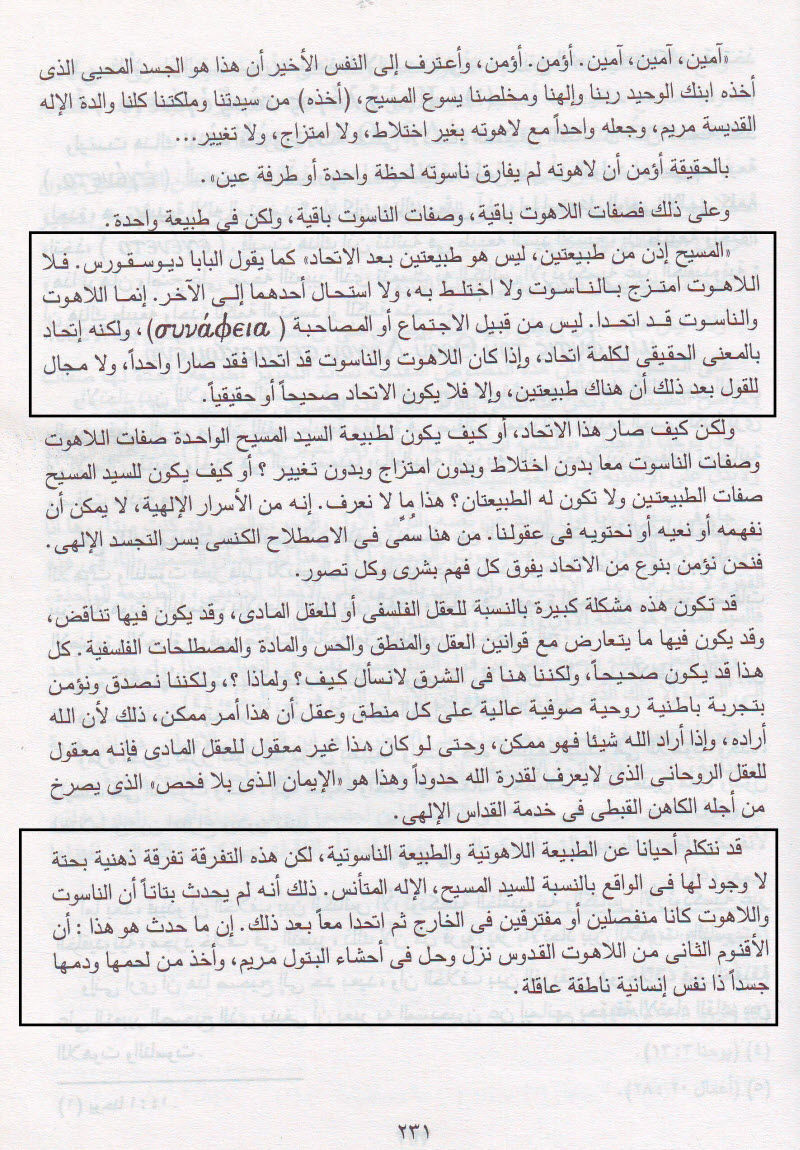 «آمين، آمين، آمين. أؤمن. أؤمن، وأعترف إلى النفس الأخير أن هذا هو الجسد المحيى الذى
أخذه ابنك الوحيد ربنا وإلهنا ومخلصنا يسوع المسيح، (أخذه) من سيدتنا وملكتنا كلنا والدة الإله
القديسة مريم، وجعله واحداً مع لاهوته بغير اختلاط، ولا امتزاج، ولا تغيير...
بالحقيقة أؤمن أن لاهوته لم يفارق ناسوته لحظة واحدة أو طرفة عين».
وعلى ذلك فصفات اللاهوت باقية، وصفات الناسوت باقية، ولكن فى طبيعة واحدة.
«المسيح إذن من طبيعتين، ليس هو طبيعتين بعد الاتحاد» كما يقول البابا ديوسقورس. فلا
اللاهوت امتزج بالناسوت ولا اختلط به، ولا استحال أحدهما إلى الآخر. إنما اللاهوت
والناسوت قد اتحدا. ليس من قبيل الاجتماع أو المصاحبة ( συνάφεια)، ولكنه إتحاد
بالمعنى الحقيقى لكلمة اتحاد، وإذا كان اللاهوت والناسوت قد اتحدا فقد صارا واحداً، ولا مجال
للقول بعد ذلك أن هناك طبيعتين، وإلا فلا يكون الاتحاد صحيحاً أو حقيقياً.
ولكن كيف صار هذا الاتحاد، أو كيف يكون لطبيعة السيد المسيح الواحدة صفات اللاهوت
وصفات الناسوت معا بدون اختلاط وبدون امتزاج وبدون تغيير ؟ أو كيف يكون للسيد المسيح
صفات الطبيعتين ولا تكون له الطبيعتان؟ هذا ما لا نعرف. إنه من الأسرار الإلهية، لا يمكن أن
نفهمه أو نعيه أو نحتويه فى عقولنا. من هنا سمِّى فى الاصطلاح الكنسى بسر التجسد الإلهى.
فنحن نؤمن بنوع من الاتحاد يفوق كل فهم بشرى وكل تصور.
قد تكون هذه مشكلة كبيرة بالنسبة للعقل الفلسفى أو للعقل المادى، وقد يكون فيها تناقض،
وقد يكون فيها ما يتعارض مع قوانين العقل والمنطق والحس والمادة والمصطلحات الفلسفية. كل
هذا قد يكون صحيحاً، ولكننا هنا فى الشرق لانسأل كيف؟ ولماذا ؟، ولكننا نصدق ونؤمن
بتجربة باطنية روحية صوفية عالية على كل منطق وعقل أن هذا أمر ممكن، ذلك لأن الله
أراده، وإذا أراد الله شيئا فهو ممكن، وحتى لو كان هذا غير معقول للعقل المادى فإنه معقول
للعقل الروحانى الذى لايعرف لقدرة الله حدوداً وهذا هو «الإيمان الذى بلا فحص» الذى يصرخ
من أجله الكاهن القبطى فى خدمة القداس الإلهى.
قد نتكلم أحيانا عن الطبيعة اللاهوتية والطبيعة الناسوتية، لكن هذه التفرقة تفرقة ذهنية بحتة
لا وجود لها فى الواقع بالنسبة للسيد المسيح، الإله المتأنس. ذلك أنه لم يحدث بتاتاً أن الناسوت
واللاهوت كانا منفصلين أو مفترقين فى الخارج ثم اتحدا معاً بعد ذلك. إن ما حدث هو هذا : أن
الأقنوم الثانى من اللاهوت القدوس نزل وحل فى أحشاء البتول مريم، وأخذ من لحمها ودمها
جسداً ذا نفس إنسانية ناطقة عاقلة.
٢٣١